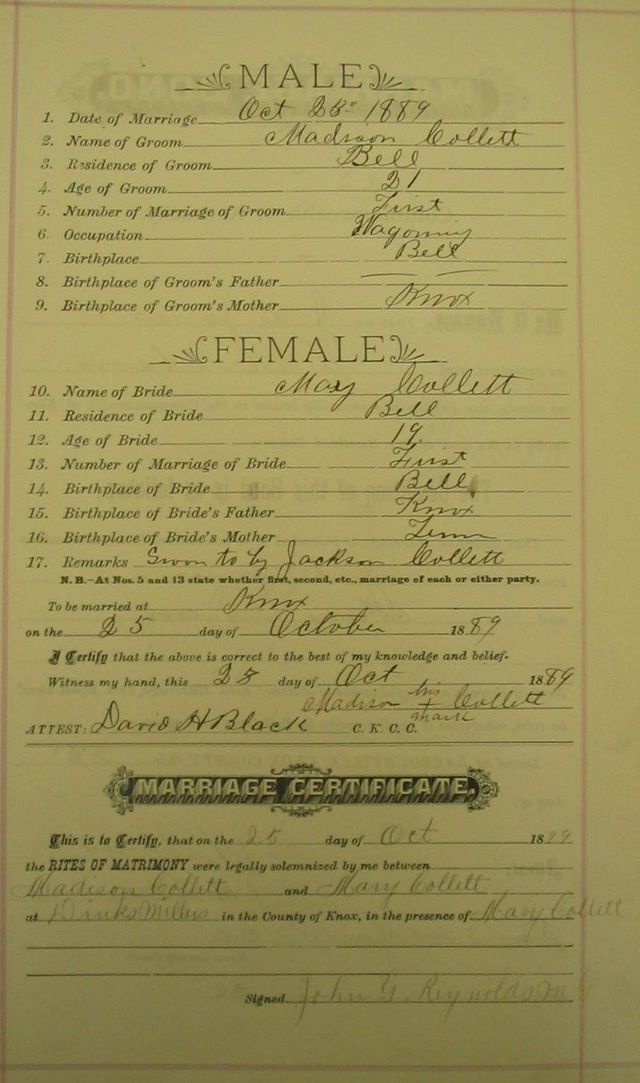 MALE
1. Date of Marriage Oct 25" 1889
2. Name of Groom Madison Collett
3. Residence of Groom Bell
4. Age of Groom 21
5. Number of Marriage of Groom First
6. Occupation Wagoning
7. Birthplace Bell
8. Birthplace of Groom's Father — —
9. Birthplace of Groom's Mother Knox
FEMALE
10. Name of Bride Mary Collett
11. Residence of Bride Bell
12. Age of Bride 19
13. Number of Marriage of Bride First
14. Birthplace of Bride Bell
15. Birthplace of Bride's Father Knox
16. Birthplace of Bride's Mother Tenn
17. Remarks Swon to by Jackson Collett
N. B.—At Nos. 5 and 13 state whether first, second, etc., marriage of each or either party.
To be married at Knox
on the 25 day of October 1889
I Certify that the above is correct to the best of my knowledge and belief.
Witness my hand, this 25 day of Oct 1889
Madison his + mark Collett
ATTEST: David H Black C. K. C. C.
MARRIAGE CERTIFICATE.
This is to Certify, that on the 25 day of Oct 1889
the RITES OF MATRIMONY were legally solemnized by me between
Madison Collett and Mary Collett
at Millers in the County of Knox, in the presence of Mary Collett
Signed John G. Reynolds M G